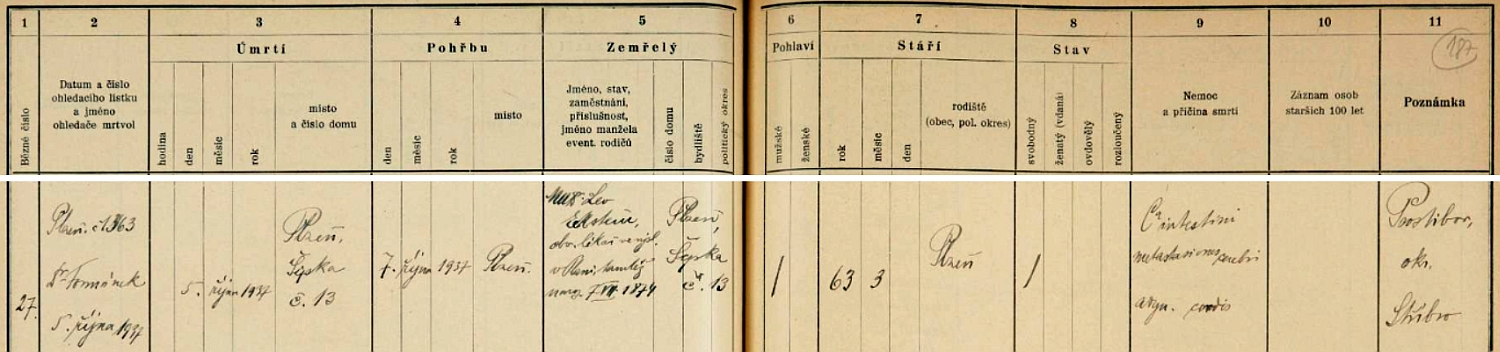 1 2 3 4 5 6 7 8 9 10 11
187
Úmrtí Pohřbu Zemřelý Pohlaví Stáří Stav
Běžné číslo
Datum a číslo
ohledacího lístku
a jméno
ohledače mrtvol
hodina
den
měsíc
rok
místo
a číslo domu
den
měsíc
rok
místo
Jméno, stav,
zaměstnání,
příslušnost,
jméno manžela
event. rodičů
číslo domu
bydliště
politický okres
mužské
ženské
rok
měsíc
den
rodiště
(obec, pol. okres)
svobodný
ženatý (vdaná)
ovdovělý
rozloučený
Nemoc
a příčina smrti
Záznam osob
starších 100 let
Poznámka
27.
Plzeň. č 1363
Dr Tománek
5. října 1937
5. října 1937
Plzeň,
č. 13
7. října 1937 Plzeň.
Lev
v Plzni
1874
Plzeň,
č. 13
1
63 3
Plzeň
1
intestini
cerebri
cordis
Prostibor,
okr.
Stříbro